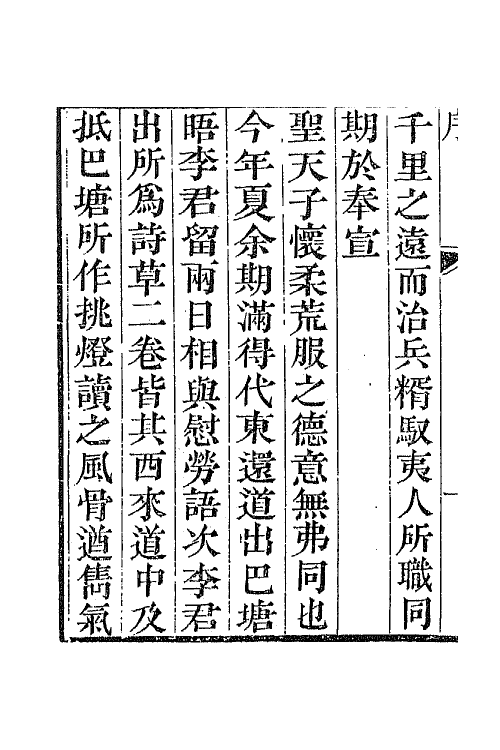 序
千里之遠而治兵糈馭夷人所職同
期於奉宣
聖天子懷柔荒服之德意無弗同也
今年夏余期滿得代東還道出巴塘
晤李君留兩日相與慰勞語次李君
出所為詩草二卷皆其西來道中及
抵巴塘所作挑燈讀之風骨遒雋氣